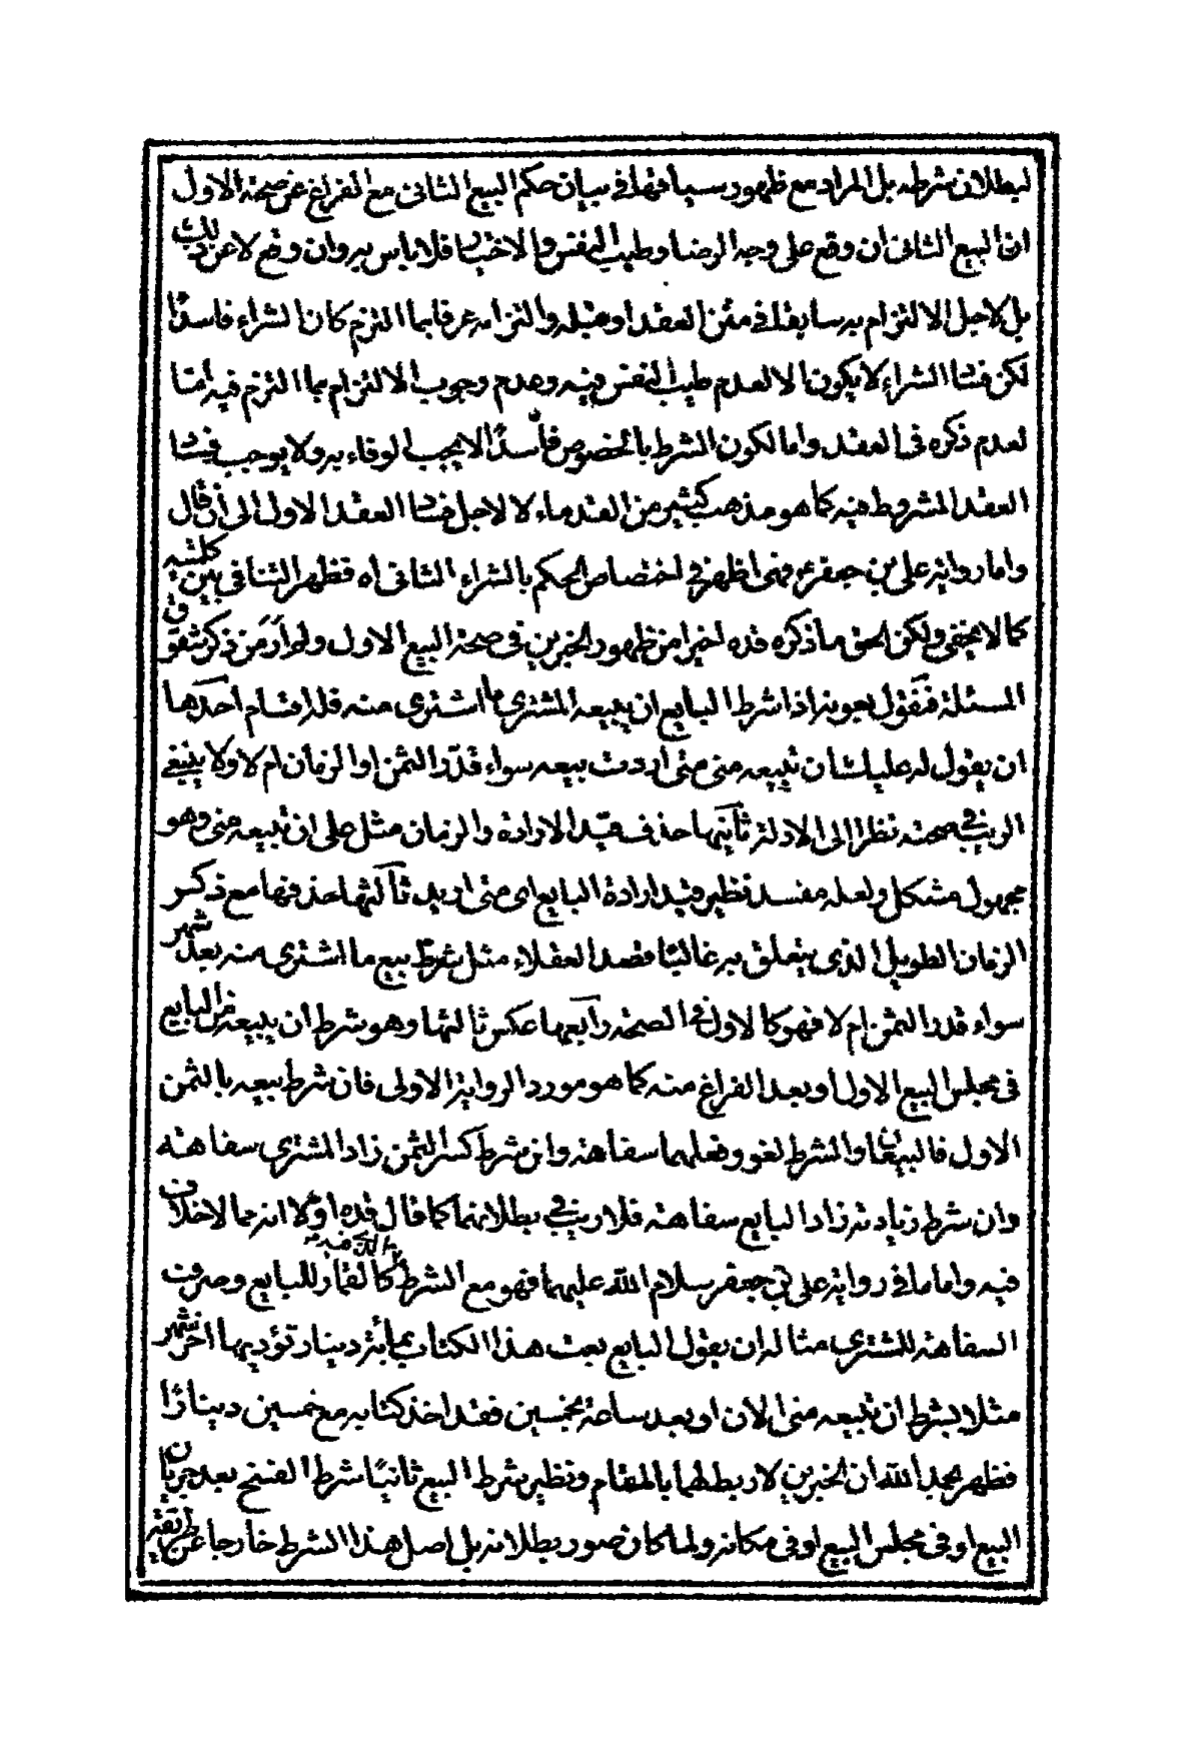 لبطلان شرطه بل المراد مع ظهور سياقها في بيان حكم البيع الثانى مع الفراغ عن صحة الاول
ان البيع الثانى ان وقع على وجه الرضا وطيب النفس والاختيار فلا باس به وان وقع لا عن ذلك
بل لاجل الالتزام به سابقا في متن العقد او قبله والتزامه عرفا بما التزم كان الشراء فاسدًا
لكن فساد الشراء لا يكون الا لعدم طيب النفس فيه وعدم وجوب الالتزام بما التزم فيه امّا
لعدم ذكره فى العقد واما لكون الشرط بالخصوص فاسدًا لا يجب الوفاء به ولا يوجب فساد
العقد المشروط فيه كما هو مذهب كثير من القدماء لا لاجل فساد العقد الاول الى ان قال
واما رواية على بن جعفر ع فهى اظهر في اختصاص الحكم بالشراء الثانى اه فظهر التنافى بين كلمتيه
كما لا يخفى ولكن الحق ما ذكره قده اخيرا من ظهور الخبرين في صحة البيع الاول ولوازم من ذكر شقوق
المسئلة فنقول بعونه اذا شرط البايع ان يبيعه المشترى ما اشترى منه فله اقسام احدها
ان يقول له عليك ان تبيعه منى متى اردت بيعه سواء قدّر الثمن او الزمان ام لا ولا ينبغى
الريب في صحته نظرا الى الادلة ثانيها حذف قيد الارادة والزمان مثل على ان تبيعه منى وهو
مجهول مشكل ولعله مفسد نظير قيد ارادة البايع اى متى اريد ثالثها حذفها مع ذكر
الزمان الطويل الذى يتعلق به غالبًا قصد العقلاء مثل شرط بيع ما اشترى منه بعد شهر
سواء قدر الثمن ام لا فهو كالاول في الصحة رابعها عكس ثالثها وهو شرط ان يبيعه من البايع
فى مجلس البيع الاول او بعد الفراغ منه كما هو مورد الرواية الاولى فان شرط بيعه بالثمن
الاول فالبيعان والشرط لغو وفعلهما سفاهة وان شرط كسر الثمن زاد المشترى سفاهته
وان شرط زيادته زاد البايع سفاهته فلا ريب في بطلانهما كما قال قده اولا انه مما لا خلاف
فيه واما ما في رواية على بن جعفر سلام الله عليهما فهو مع الشرط كالقمار للبايع وصرف
السفاهة للمشترى مثاله ان يقول البايع بعت هذا الكتاب بمأية دينار تؤديها اخر شهر
مثلا بشرط ان تبيعه منى الان او بعد ساعة بخمسين فقد اخذ كتابه مع خمسين دينارًا
فظهر بحمد الله ان الخبرين لا ربط لهما بالمقام ونظير شرط البيع ثانيًا شرط الفسخ بعد جريان
البيع او فى مجلس البيع او فى مكانه ولما كان صور بطلانه بل اصل هذا الشرط خارجا عن طريقة